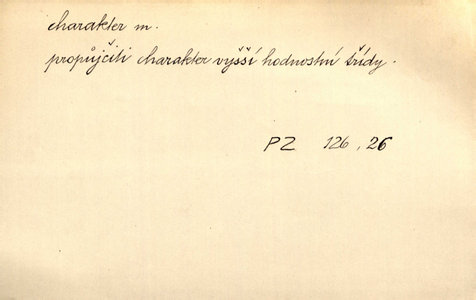 charakter m.
propůjčiti charakter vyšší hodnostní třídy.
PZ 126, 26